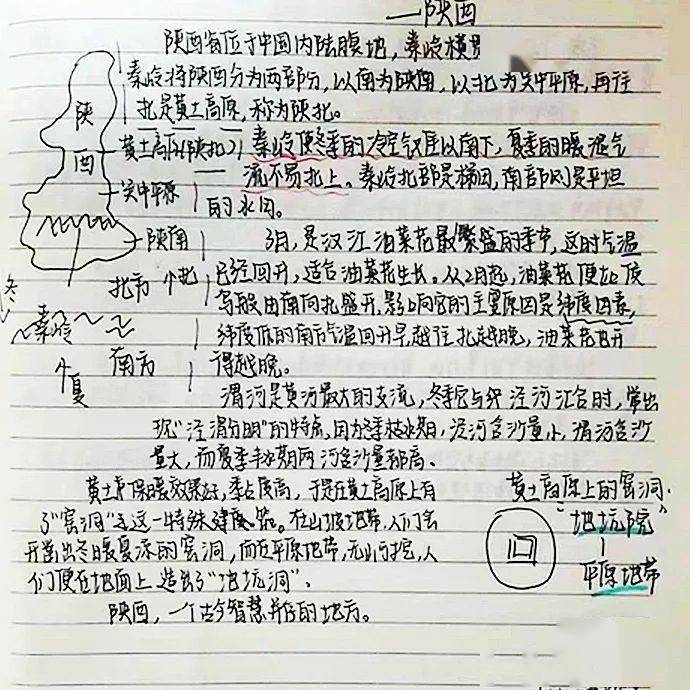 ——陕西
陕西省位于中国内陆腹地，秦岭横
秦岭将陕西分为两部分，以南为陕南，以北为关中平原，再往
北是黄土高原，称为陕北。
陕
西
黄土高原(陕北)
秦岭使冬季的冷空气难以南下，夏季的暖湿气
关中平原
流不易北上。秦岭北部是梯田，南部则是平坦
的水田。
陕南
3月，是汉江油菜花最繁盛的季节，这时气温
冬
北方
已经回升，适合油菜花生长。从2月起，油菜花便如
由南向北盛开，影响它的主要原因是纬度因素，
秦岭
纬度低的南方气温回升早，越往北越晚，油菜花也开
夏
南方
得越晚。
渭河是黄河最大的支流，冬季它与 泾河汇合时，常出
现“泾渭分明”的特点，因为冬季枯水期，泾河含沙量小，渭河含沙
量大，而夏季丰水期两河含沙量都高。
黄土 保暖效果好，黏度高，于是在黄土高原上有
了“窑洞”这一特殊建筑。在山坡地带，人们会
开凿出冬暖夏凉的窑洞，而在平原地带，无山可挖，人
们便在地面上造出了“地坑洞”。
黄土高原上的窑洞
地坑院
平原地带
陕西，一个古今智慧并存的地方。